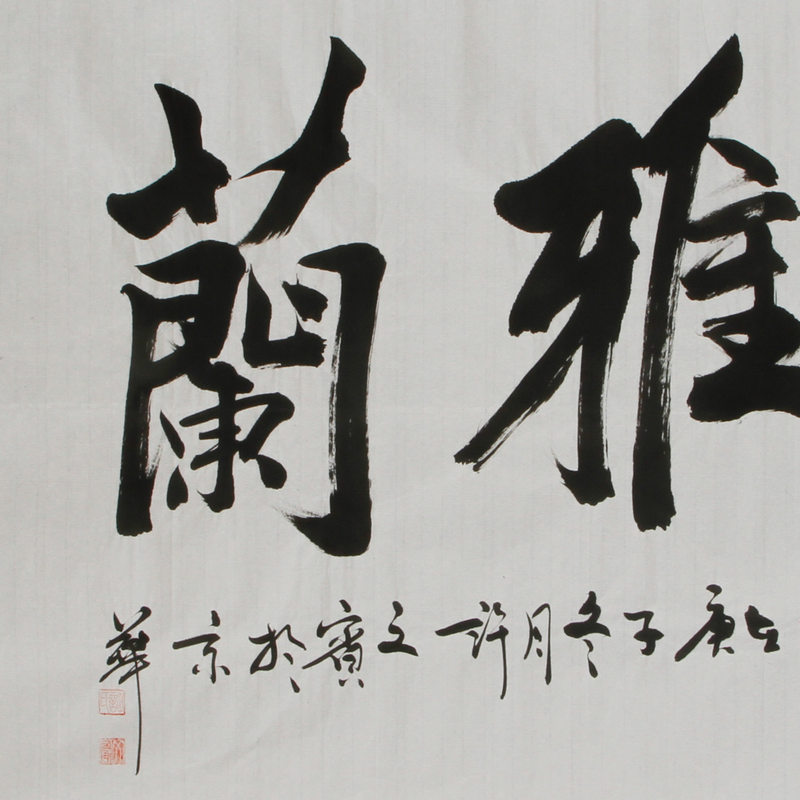 雅蘭
在庚子冬月許文賓於京華